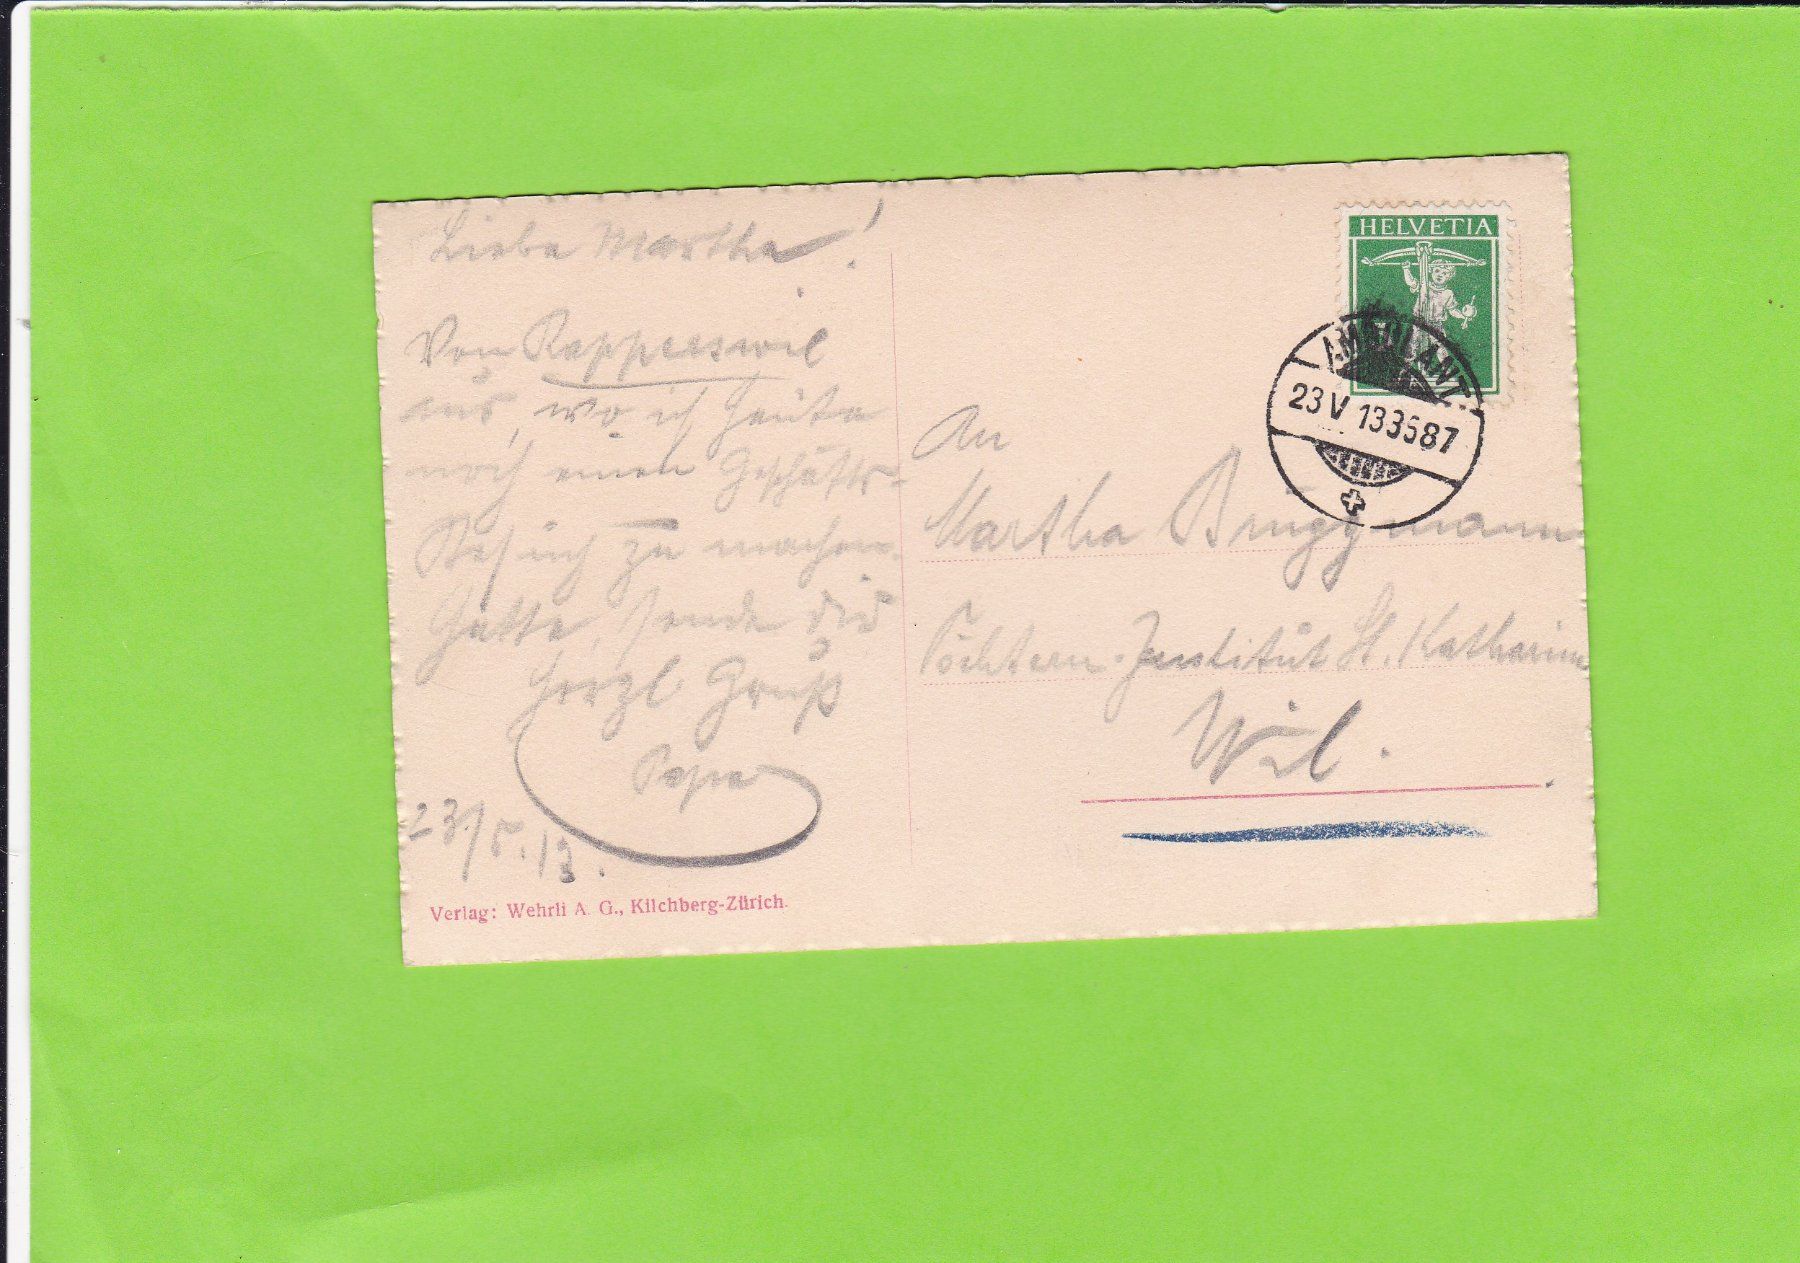 Liebe Martha!
Von Rapperswil
aus, wo ich heute
noch einen Geschäfts-
Besuch zu machen
hatte, sende dir
herzl Gruß
Papa
23/5.13.
Verlag: Wehrli A. G., Kilchberg-Zürich.
HELVETIA
AMBULANT.
23 V 13 3587
An
Martha Brüggmann
Töchtern-Institut St. Katharina
Wil.